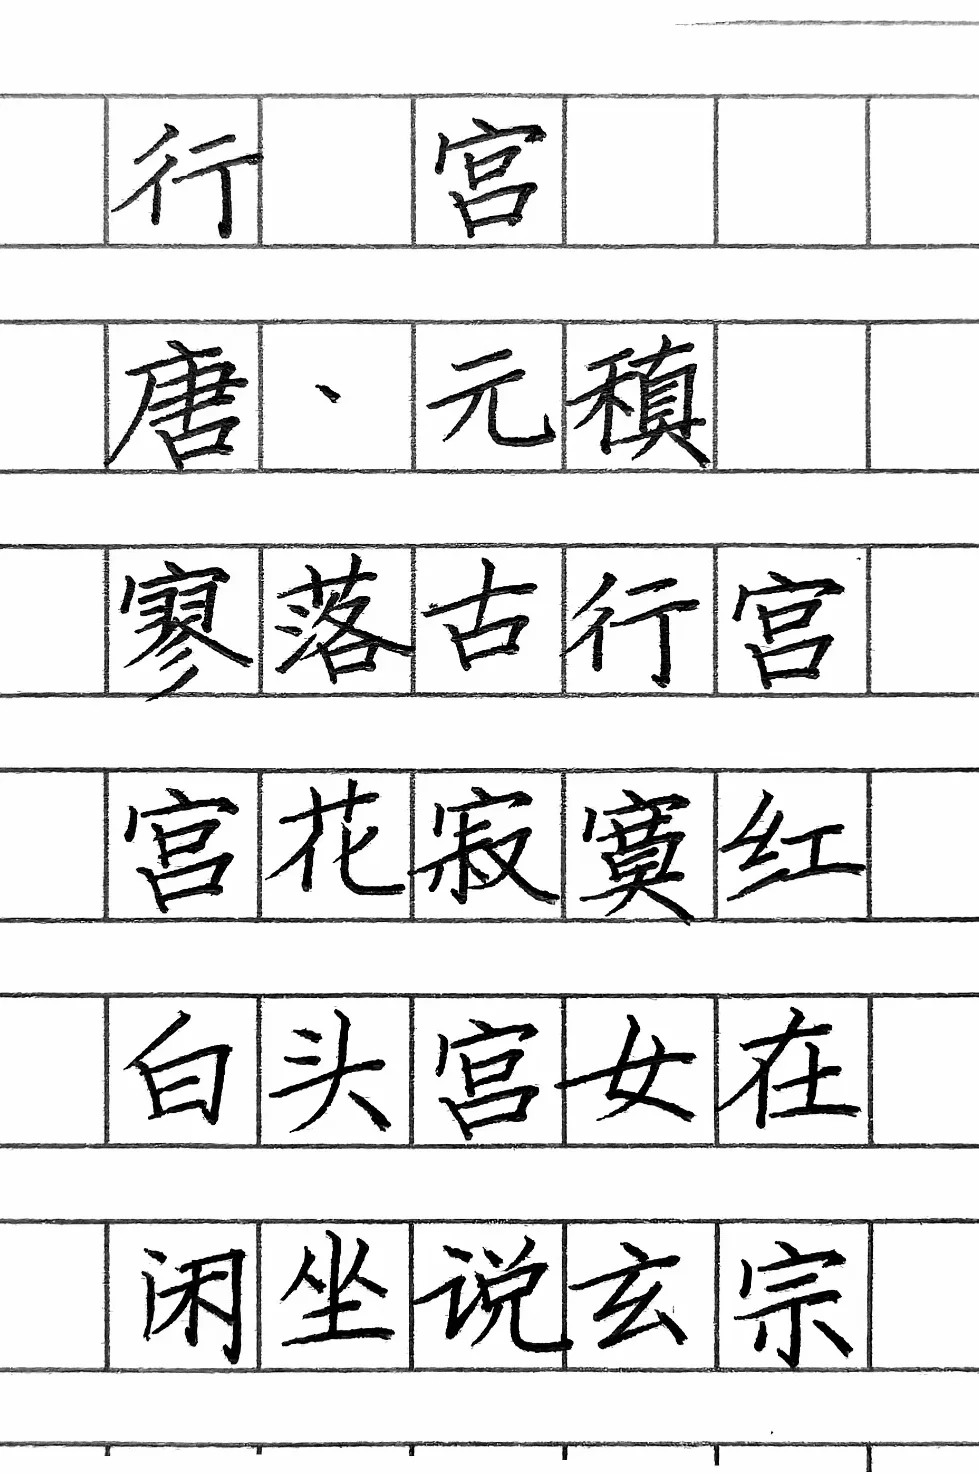 行 宫
唐、元稹
寥落古行宫
宫花寂寞红
白头宫女在
闲坐说玄宗